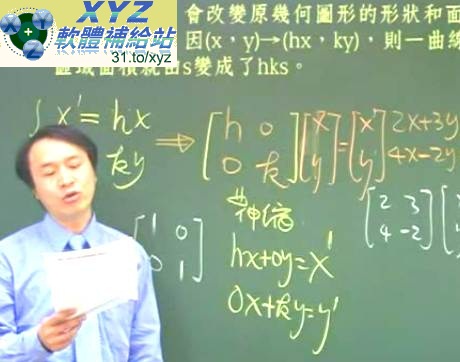 XYZ
軟體補給站
31.to/xyz
會改變原幾何圖形的形狀和面
因(x，y)→(hx，ky)，則一曲線
區域面積就由s變成了hks。
x' = hx
ky
⇒ [h 0 0 k] [x y] = [x' y']
2x+3y
4x-2y
[1 0 0 1]
伸縮
hx+0y=x'
0x+ky=y'
[2 3 4 -2]